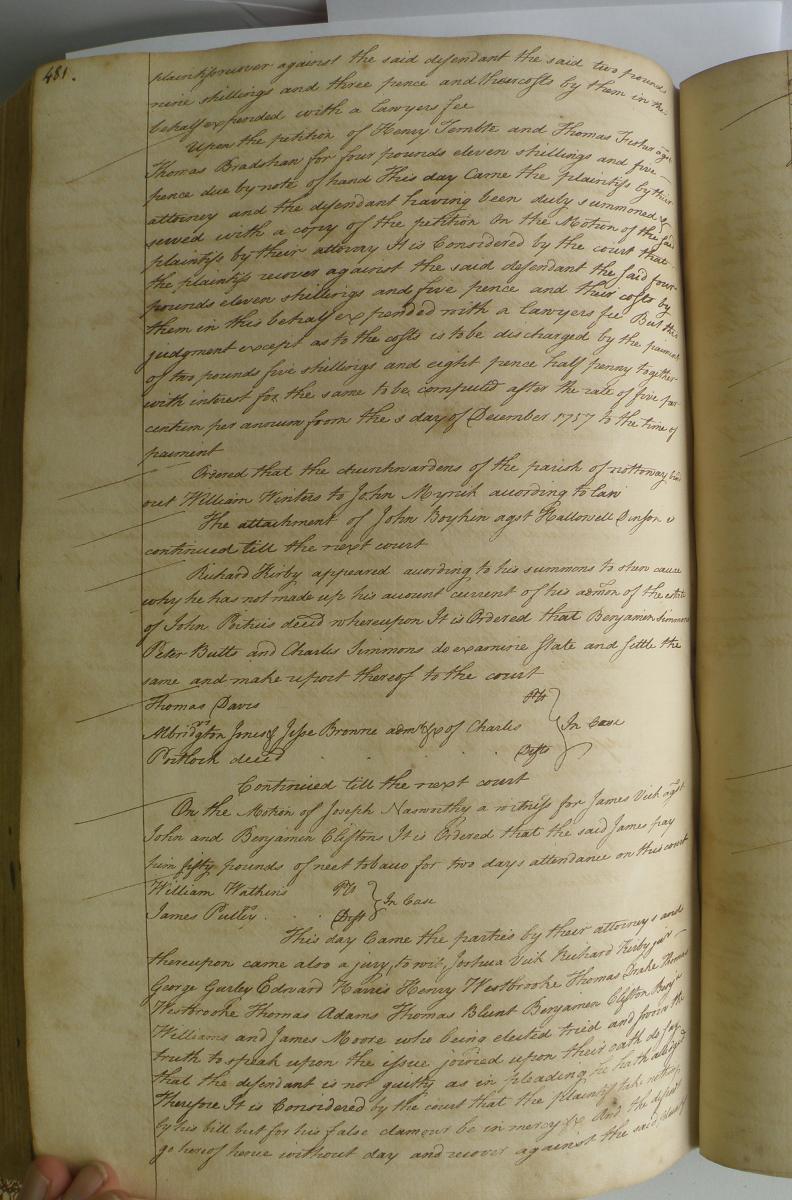 481.
plaintifs recover against the said defendant the said two pounds
nine shillings and three pence and their costs by them in this
behalf expended with a lawyers fee
Upon the petition of Henry Temble and Thomas Fisher agst
Thomas Bradshaw for four pounds eleven shillings and five
pence due by note of hand This day Came the plaintifs by their
attorney and the defendant having been duly summoned &
served with a copy of the petition On the Motion of the said
plaintifs by their attorney It is Considered by the court that
the plaintifs recover against the said defendant the said four
pounds eleven shillings and five pence and their costs by
them in this behalf expended with a lawyers fee But this
judgment except as to the costs is to be discharged by the paiment
of two pounds five shillings and eight pence half penny together
with interest for the same to be computed after the rate of five per
centum per annum from the s day of December 1757 to the time of
paiment
Ordered that the churchwardens of the parish of nottoway bind
out William Winters to John Myrick according to law
The attachment of John Boykin agst Hallowell Denson is
continued till the next court
Richard Kirby appeared according to his summons to shew cause
why he has not made up his account current of his admon of the estate
of John deced whereupon It is Ordered that Benjamin Simmons
Peter Butts and Charles Simmons do examine State and settle the
same and make report thereof to the court
Thomas Davis Plt
Albridgton Jones & Jesse Browne admrs &c of Charles } In Case
Portlock deced . . . . Defts
Continued till the next court
On the Motion of Joseph Nasworthy a witness for James Vick agst
John and Benjamin Cliftons It is Ordered that the said James pay
him fifty pounds of neet tobacco for two days attendance on this court
William Watkins Plt } In Case
James Pulley . . Deft
This day Came the parties by their attorneys and
thereupon came also a jury, to wit, Joshua Vick Richard Kirby junr
George Gurley Edward Harris Henry Westbrooke Thomas Drake Thomas
Westbrooke Thomas Adams Thomas Blunt Benjamin Clifton Benja
Williams and James Moore who being elected tried and sworn the
truth to speak upon the issue joined upon their oath do say
that the defendant is not guilty as in pleading he hath alledged
Therefore It is Considered by the court that the plaintif take nothing
by his bill but for his false clamour be in mercy &c And the defendt
go hereof hence without day and recover against the said plaintif